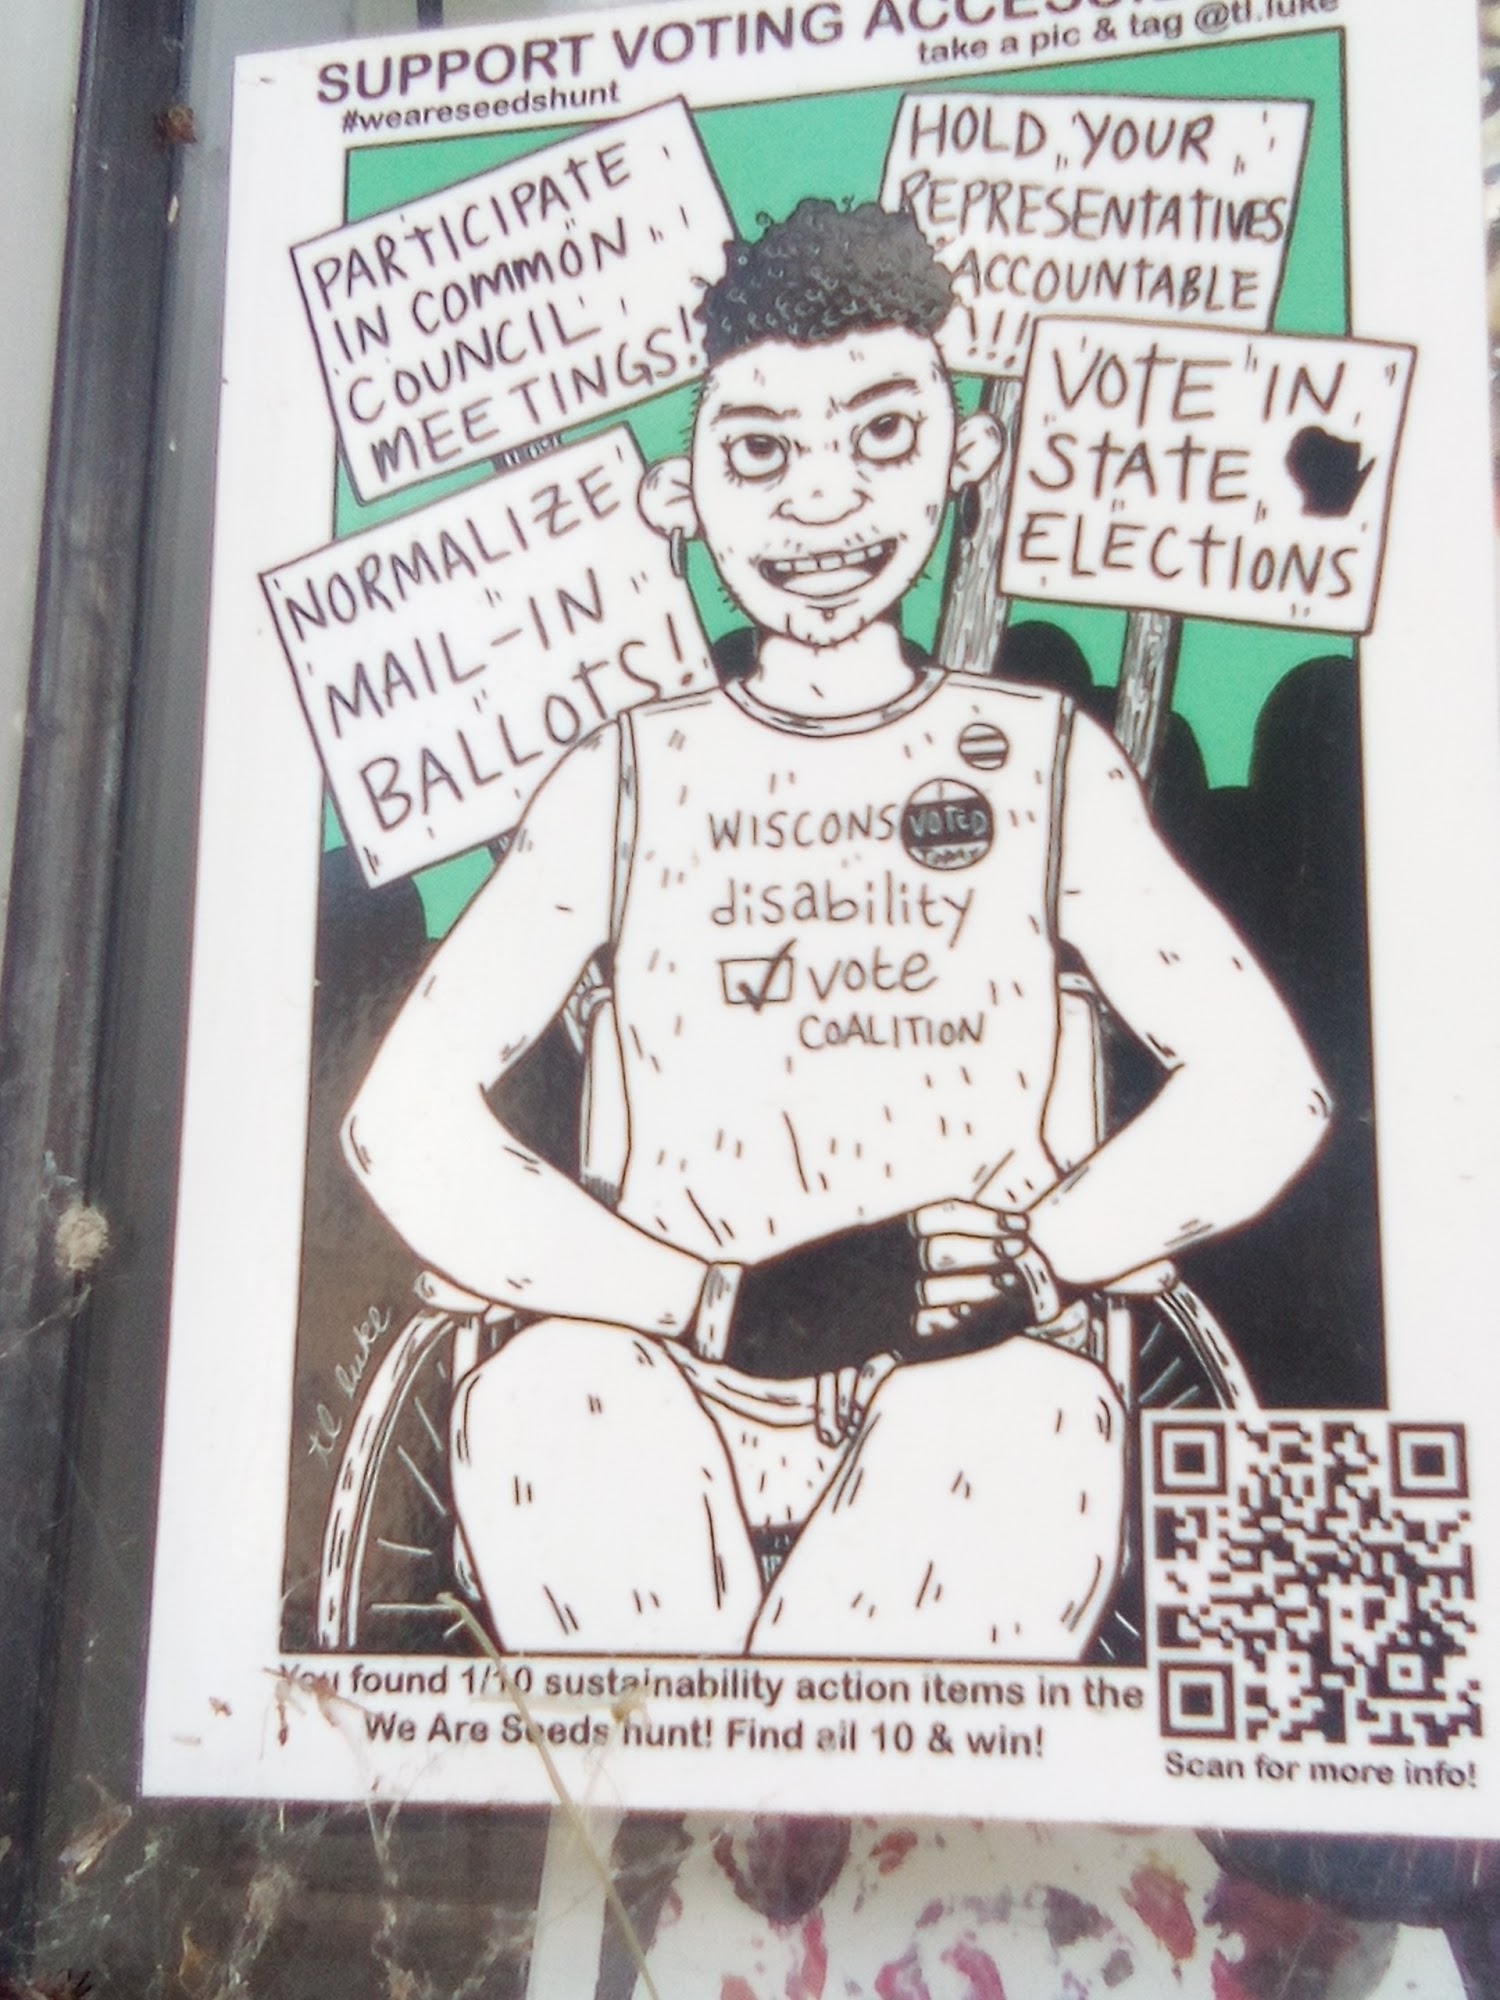 SUPPORT VOTING
take a pic & tag @tl.luke
#weareseedshunt
PARTICIPATE
IN COMMON
COUNCIL
MEETINGS!
HOLD YOUR
REPRESENTATIVES
ACCOUNTABLE
!!!
VOTE IN
STATE
ELECTIONS
NORMALIZE
MAIL-IN
BALLOTS!
WISCONS
VOTED
TODAY
disability
vote
COALITION
tl luke
You found 1/10 sustainability action items in the
We Are Seeds hunt! Find all 10 & win!
Scan for more info!